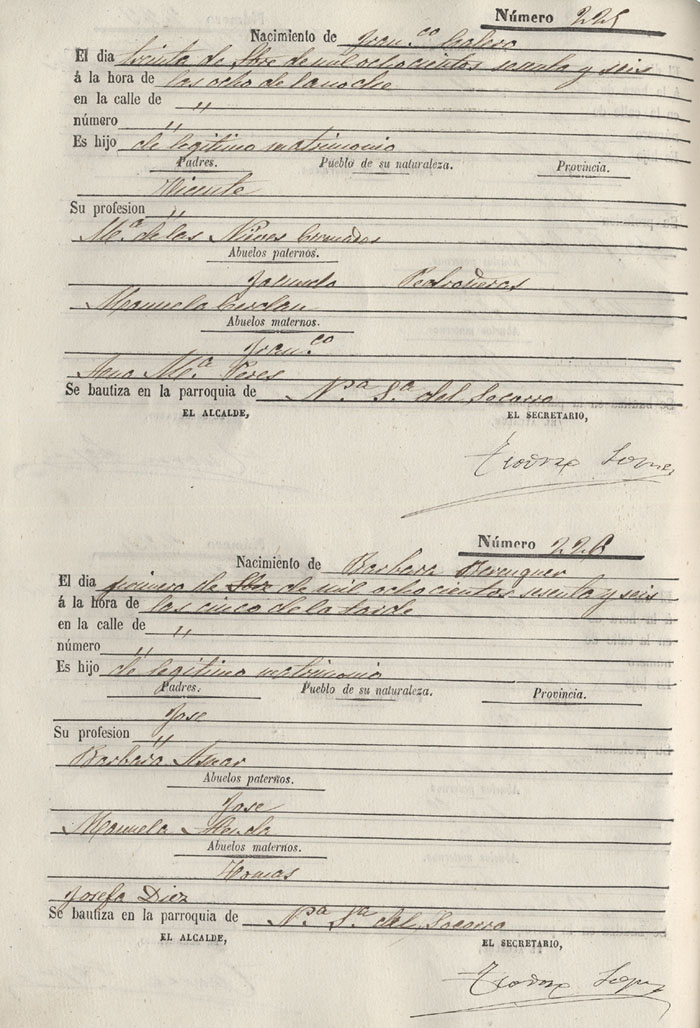 Número 225
Nacimiento de Fran.co Calero
El dia treinta de Sbre de mil ochocientos sesenta y seis
á la hora de las ocho de la noche
en la calle de "
número "
Es hijo de legitimo matrimonio
Padres. Pueblo de su naturaleza. Provincia.
Vicente
Su profesion "
M.a de las Nieves Cremades
Abuelos paternos.
Jacinto Pedroñeras
Manuela Cerdan
Abuelos maternos.
Fran.co
Ana M.a Peres
Se bautiza en la parroquia de N.a S.a del Socorro
EL ALCALDE, EL SECRETARIO,
Teodoro Lopez
Número 226
Nacimiento de Barbara Berenguer
El dia primero de Sbre de mil ochocientos sesenta y seis
á la hora de las cinco de la tarde
en la calle de "
número "
Es hijo de legitimo matrimonio
Padres. Pueblo de su naturaleza. Provincia.
Jose
Su profesion "
Barbara Asnar
Abuelos paternos.
Jose
Manuela
Abuelos maternos.
Tomas
Josefa Diez
Se bautiza en la parroquia de N.a S.a del Socorro
EL ALCALDE, EL SECRETARIO,
Teodoro Lopez